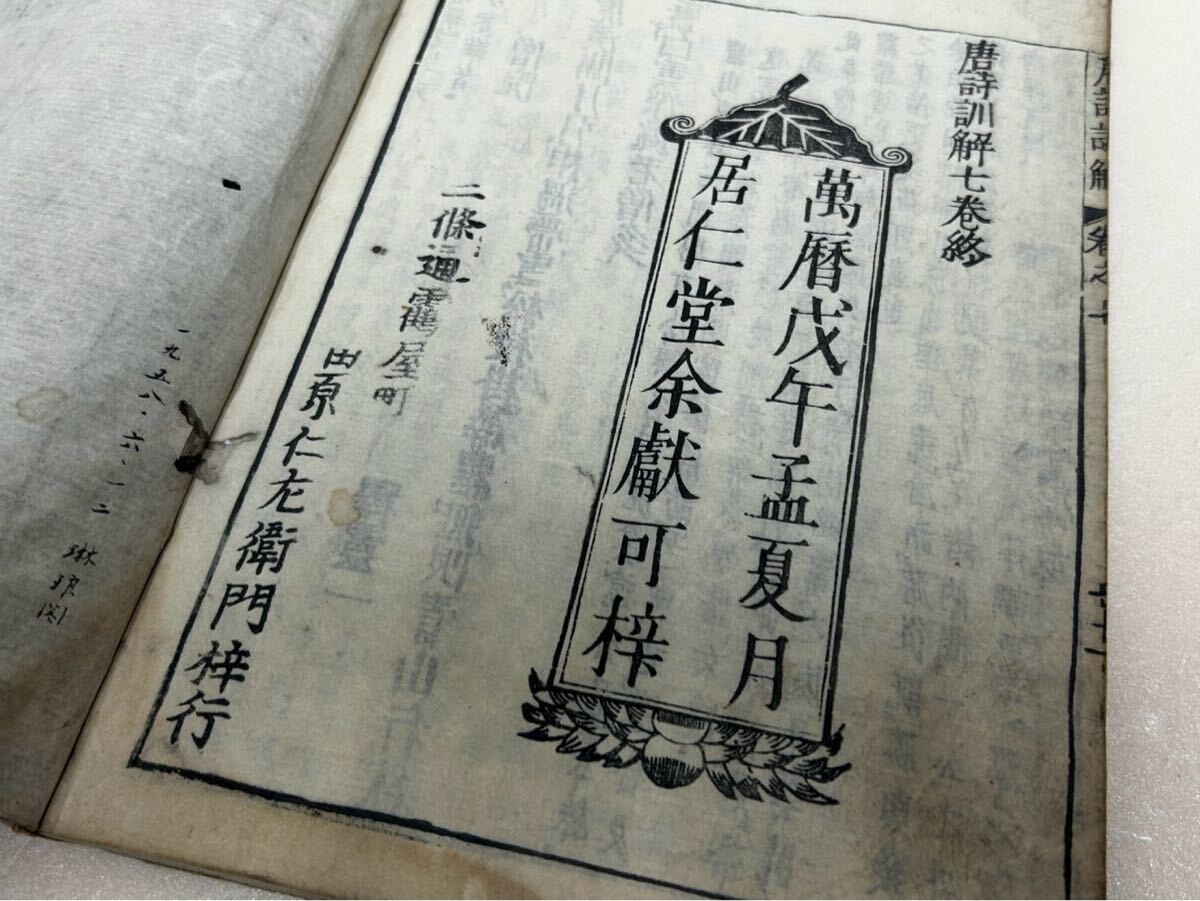 唐詩訓解 卷之七
唐詩訓解七卷終
萬曆戊午孟夏月
居仁堂余獻可梓
二條通靏屋町
田原仁左衛門梓行
一九五八・六・一二 琳琅閣